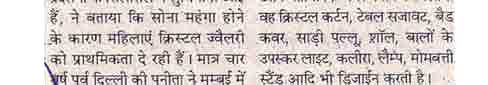 हैं, ने बताया कि सोना महंगा होने
के कारण महिलाएं क्रिस्टल ज्वैलरी
को प्राथमिकता दे रही हैं। मात्र चार
वर्ष पूर्व दिल्ली की पुनीता ने मुम्बई में
वह क्रिस्टल कर्टन, टेबल सजावट, बैड
कवर, साड़ी पुल्लू, शॉल, बालों के
उपस्कर लाइट, कलीरा, लैम्प, मोमबत्ती
स्टैंड आदि भी डिजाईन करती है।